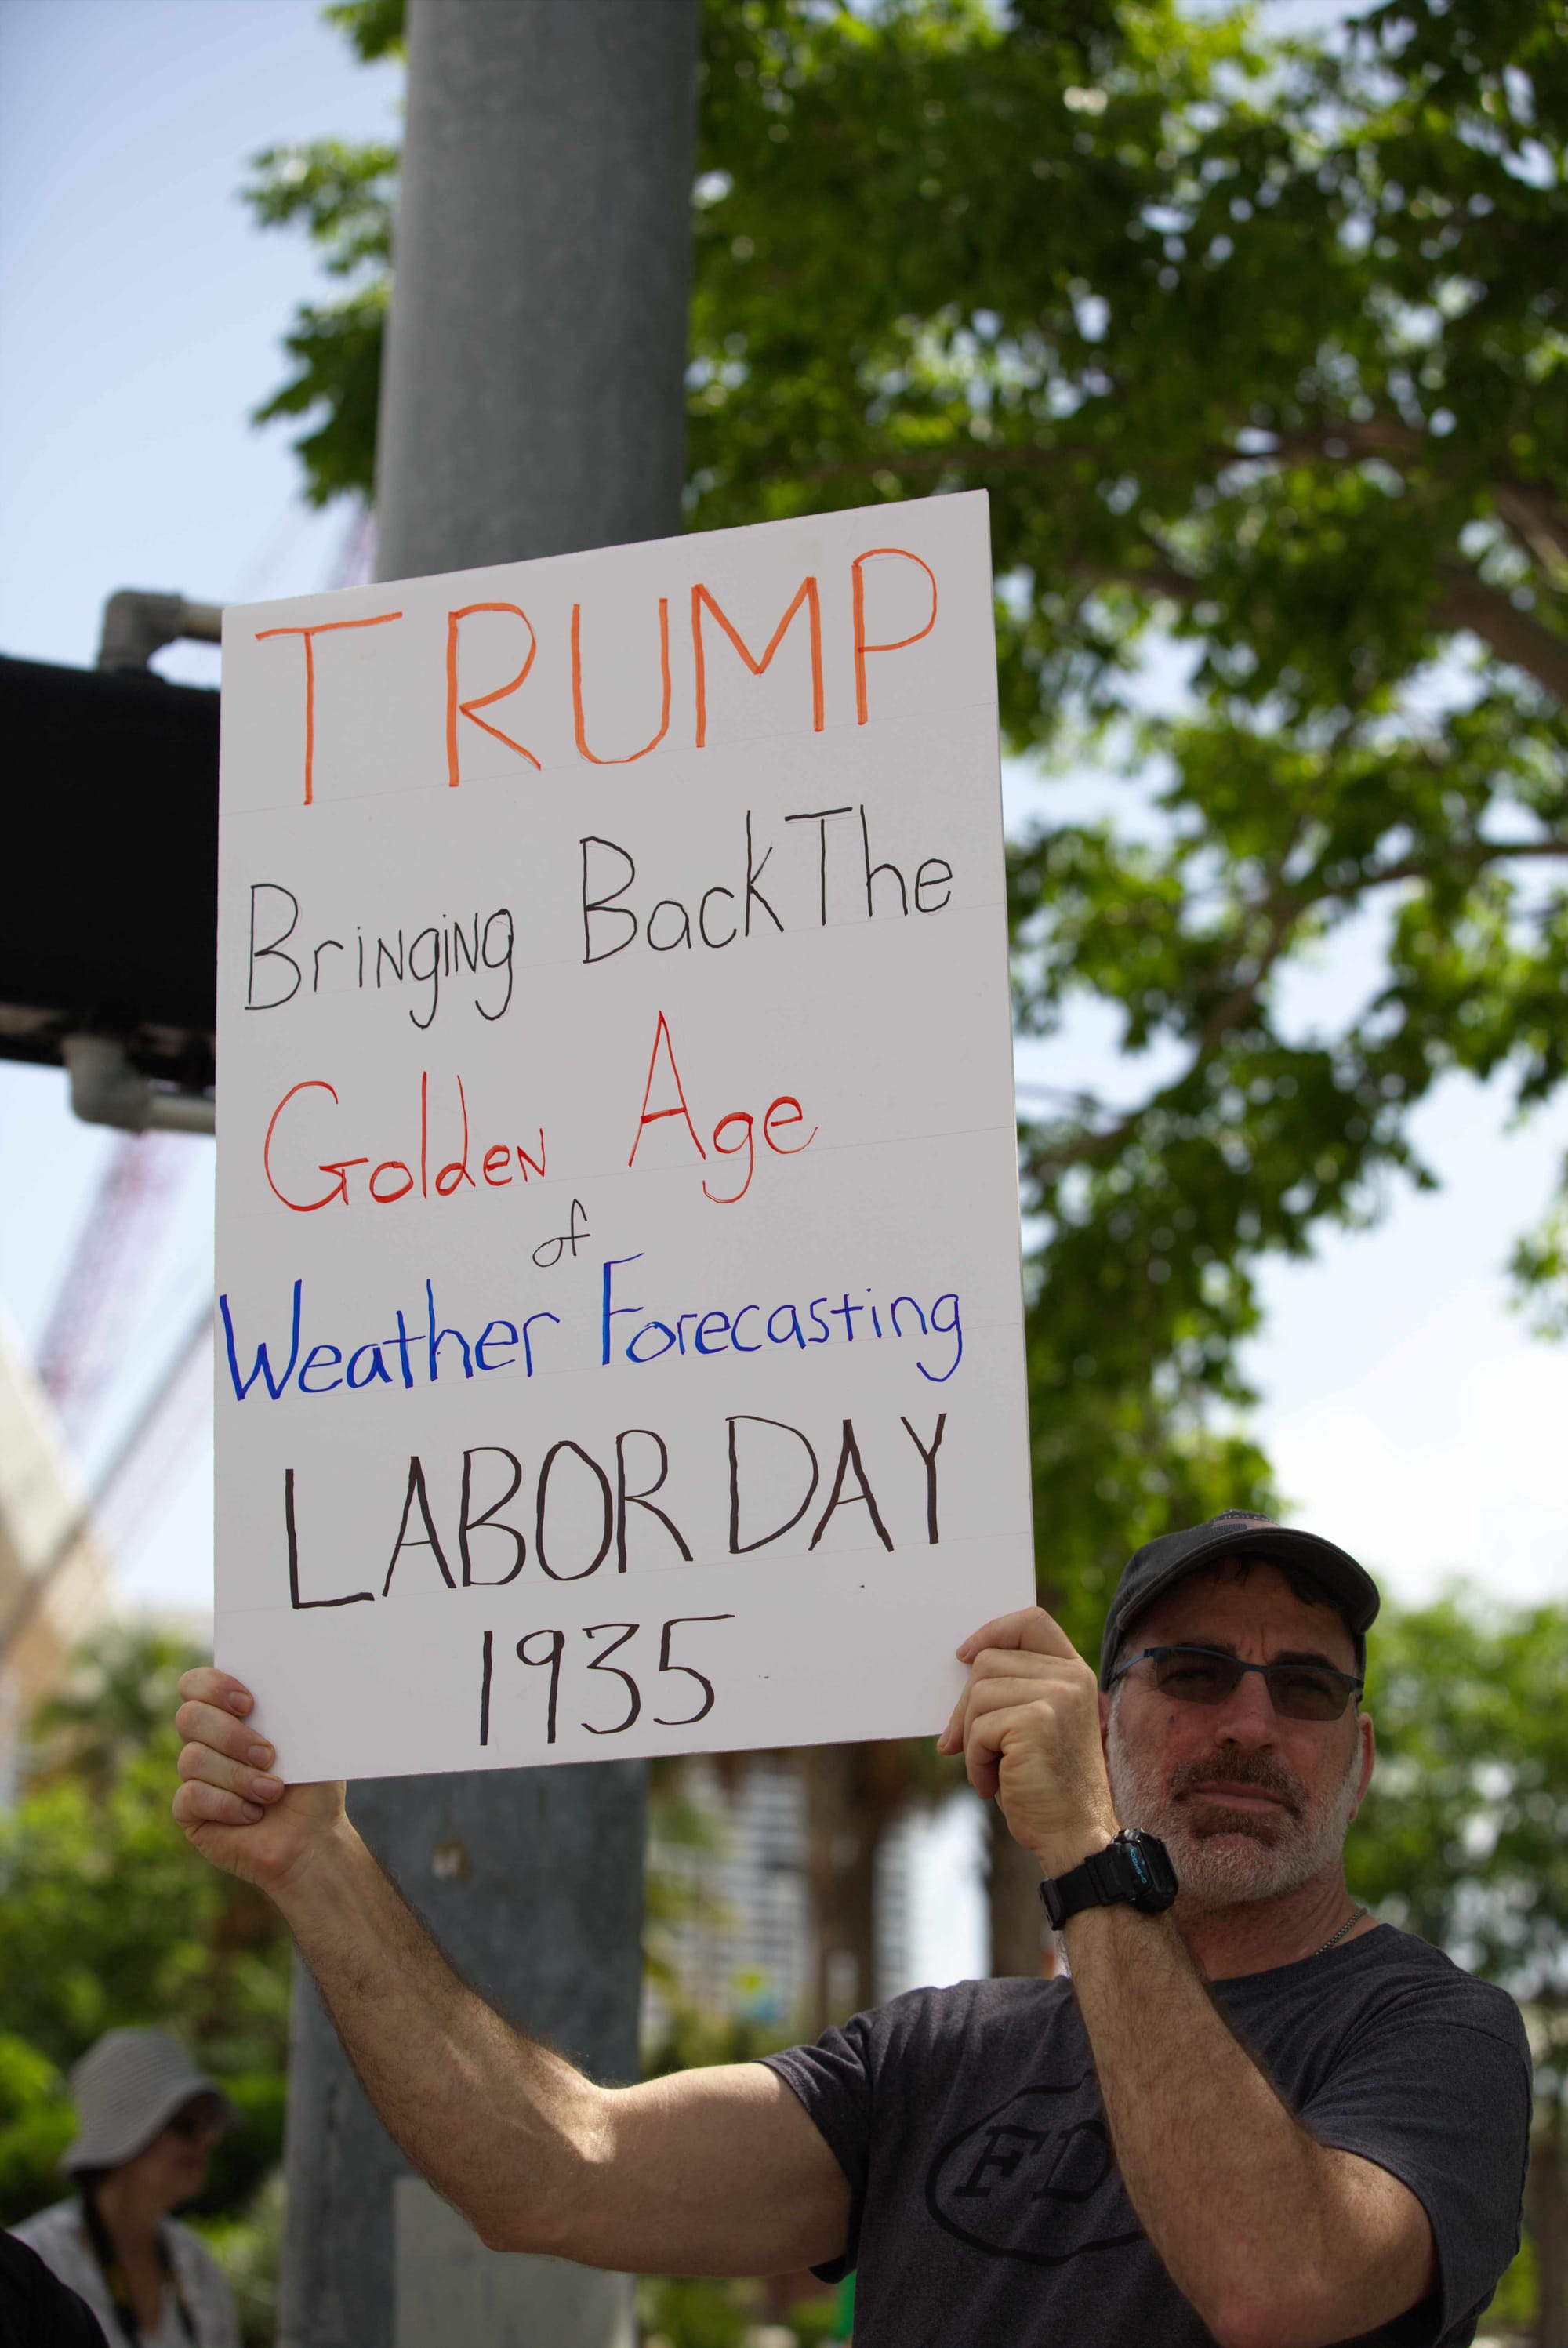 TRUMP
Bringing Back The
Golden Age
of
Weather Forecasting
LABOR DAY
1935
FD